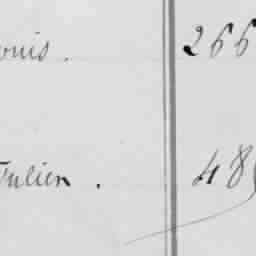 ouis. 266
Julien. 48